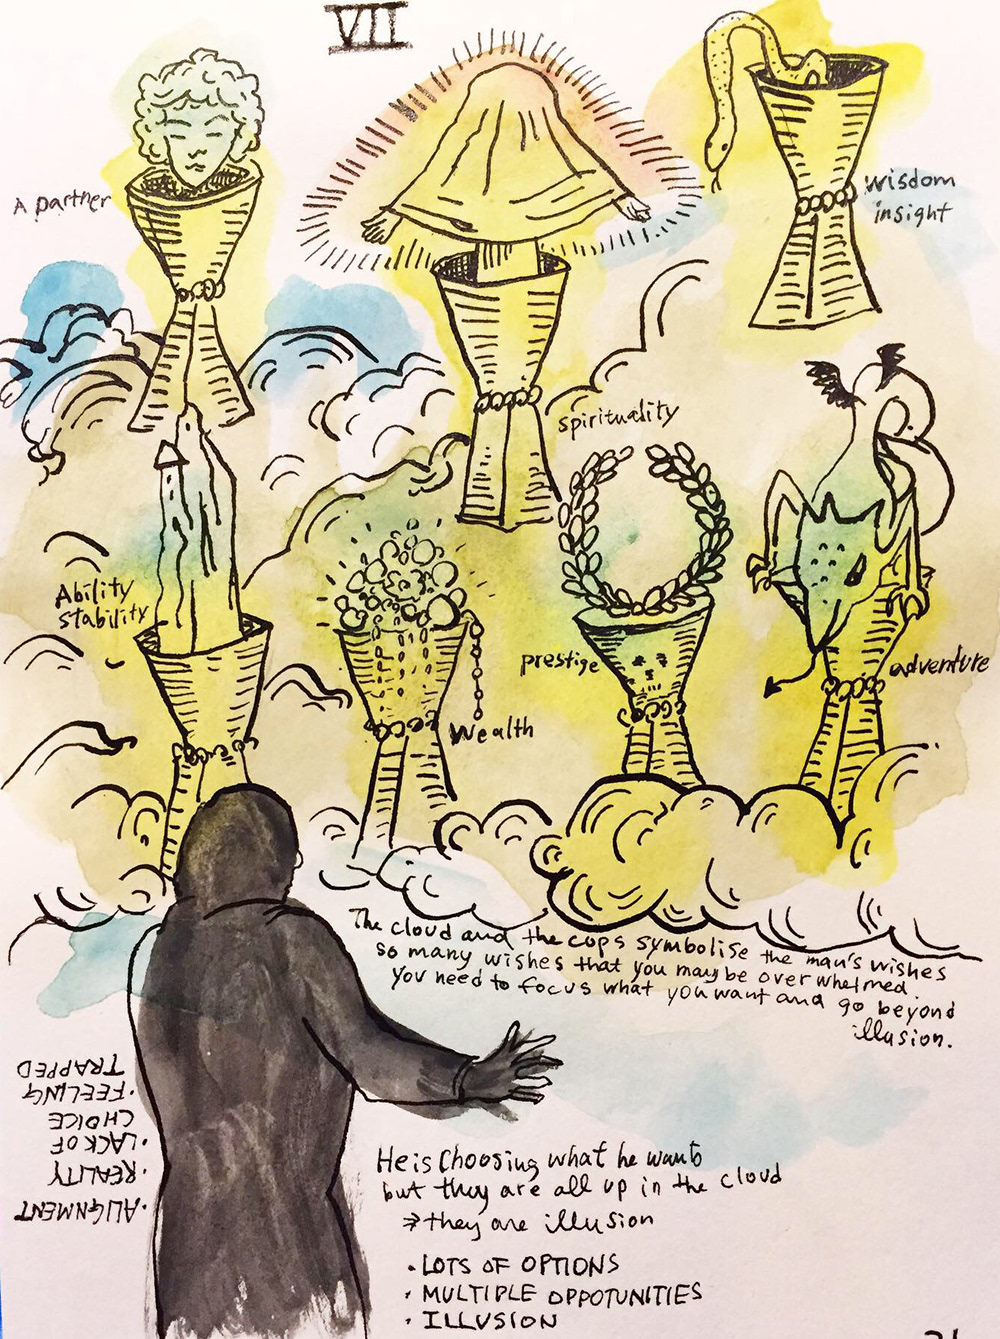 VII
A partner
wisdom
insight
spirituality
Ability
stability
Wealth
prestige
adventure
The cloud and the cups symbolise the man's wishes
so many wishes that you may be over whelmed.
you need to focus what you want and go beyond
illusion.
He is choosing what he wants
but they are all up in the cloud
⇒ they are illusion
• LOTS OF OPTIONS
• MULTIPLE OPPOTUNITIES
• ILLUSION
• ALIGNMENT
• REALITY
• LACK OF
CHOICE
• FEELING
TRAPPED